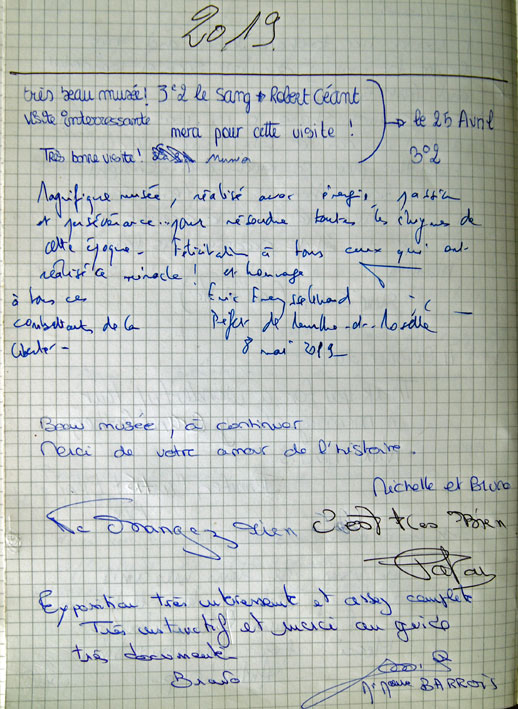 2019
très beau musée! 3e2 le sang Robert Géant
visite interressante
merci pour cette visite!
→ le 25 Avril
3e2
Très bonne visite!
Magnifique musée, réalisé avec énergie, passion
et persévérance pour résoudre toutes les énigmes de
cette époque. Félicitation à tous ceux qui ont
réalisé ce miracle! et hommage
à tous ces
combattants de la
Liberté-
Eric Freysselinard
Préfet de Meurthe-et-Moselle
8 mai 2019
Beau musée, à continuer
Merci de votre amour de l'histoire.
Michelle et Bruno
Ne changez rien C'est très Bien
Exposition très intéressante et assez complète
Très instructif et merci au guide
très documenté
Bravo
BARROIS